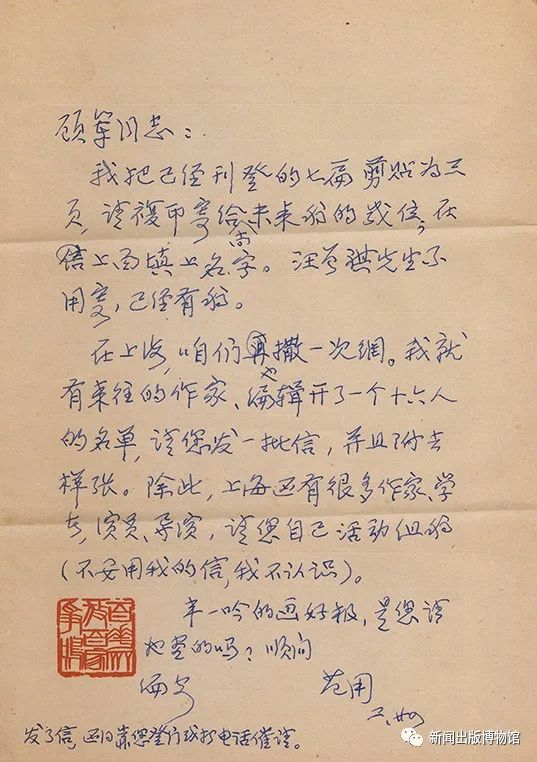 顾军同志：
我把已经刊登的七篇剪贴为三
页，请複印寄给尚未来稿的，在
信上面填上名字。汪曾祺先生不
用寄，已经有稿。
在上海，咱们再撒一次網。我就
有来往的作家、编辑开了一个十六人
的名单，请您发一批信，并且附去
样张。除此，上海还有很多作家、学
者、演员、导演，请您自己活动组稿
（不要用我的信，我不认识）。
丰一吟的画好极，是您请
她画的吗？顺问
编安 范用
发了信，还得靠您登门或打电话催请。
新闻出版博物馆